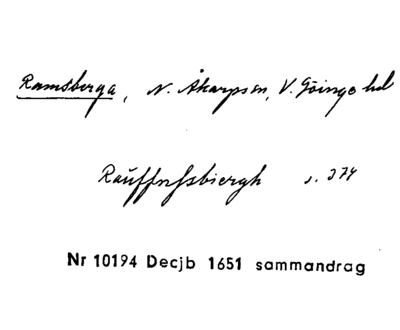 Ramsberga, N. Åkarps sn, V. Göinge hd
Rauffnssbiergh s. 374
Nr 10194 Decjb 1651 sammandrag